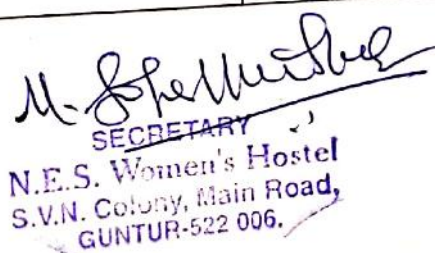 M.
SECRETARY
N.E.S. Women's Hostel
S.V.N. Colony, Main Road,
GUNTUR-522 006.